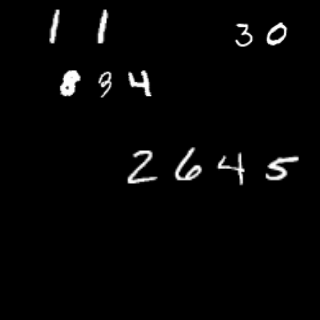 11 30
834
2645